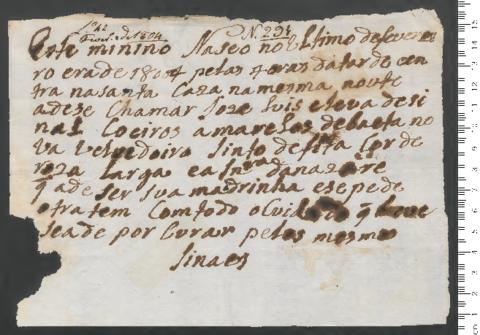 Fever.º de 1804 N 294
Este minino Naseo no Ultimo de Feverei
ro era de 1804 pelas 4 oras da tarde en
tra na santa Caza na mesma noute
adese Chamar Joze Luis e leva de si
nal Coeiros amarelos de baeta no
va vestedoiro sinto de fita Cor de
roza larga e a Snra da nazare
q ade ser sua madrinha e se pede
o tratem Com todo o Cuidado q leve
seade por Curar pelos mesmo
sinaes